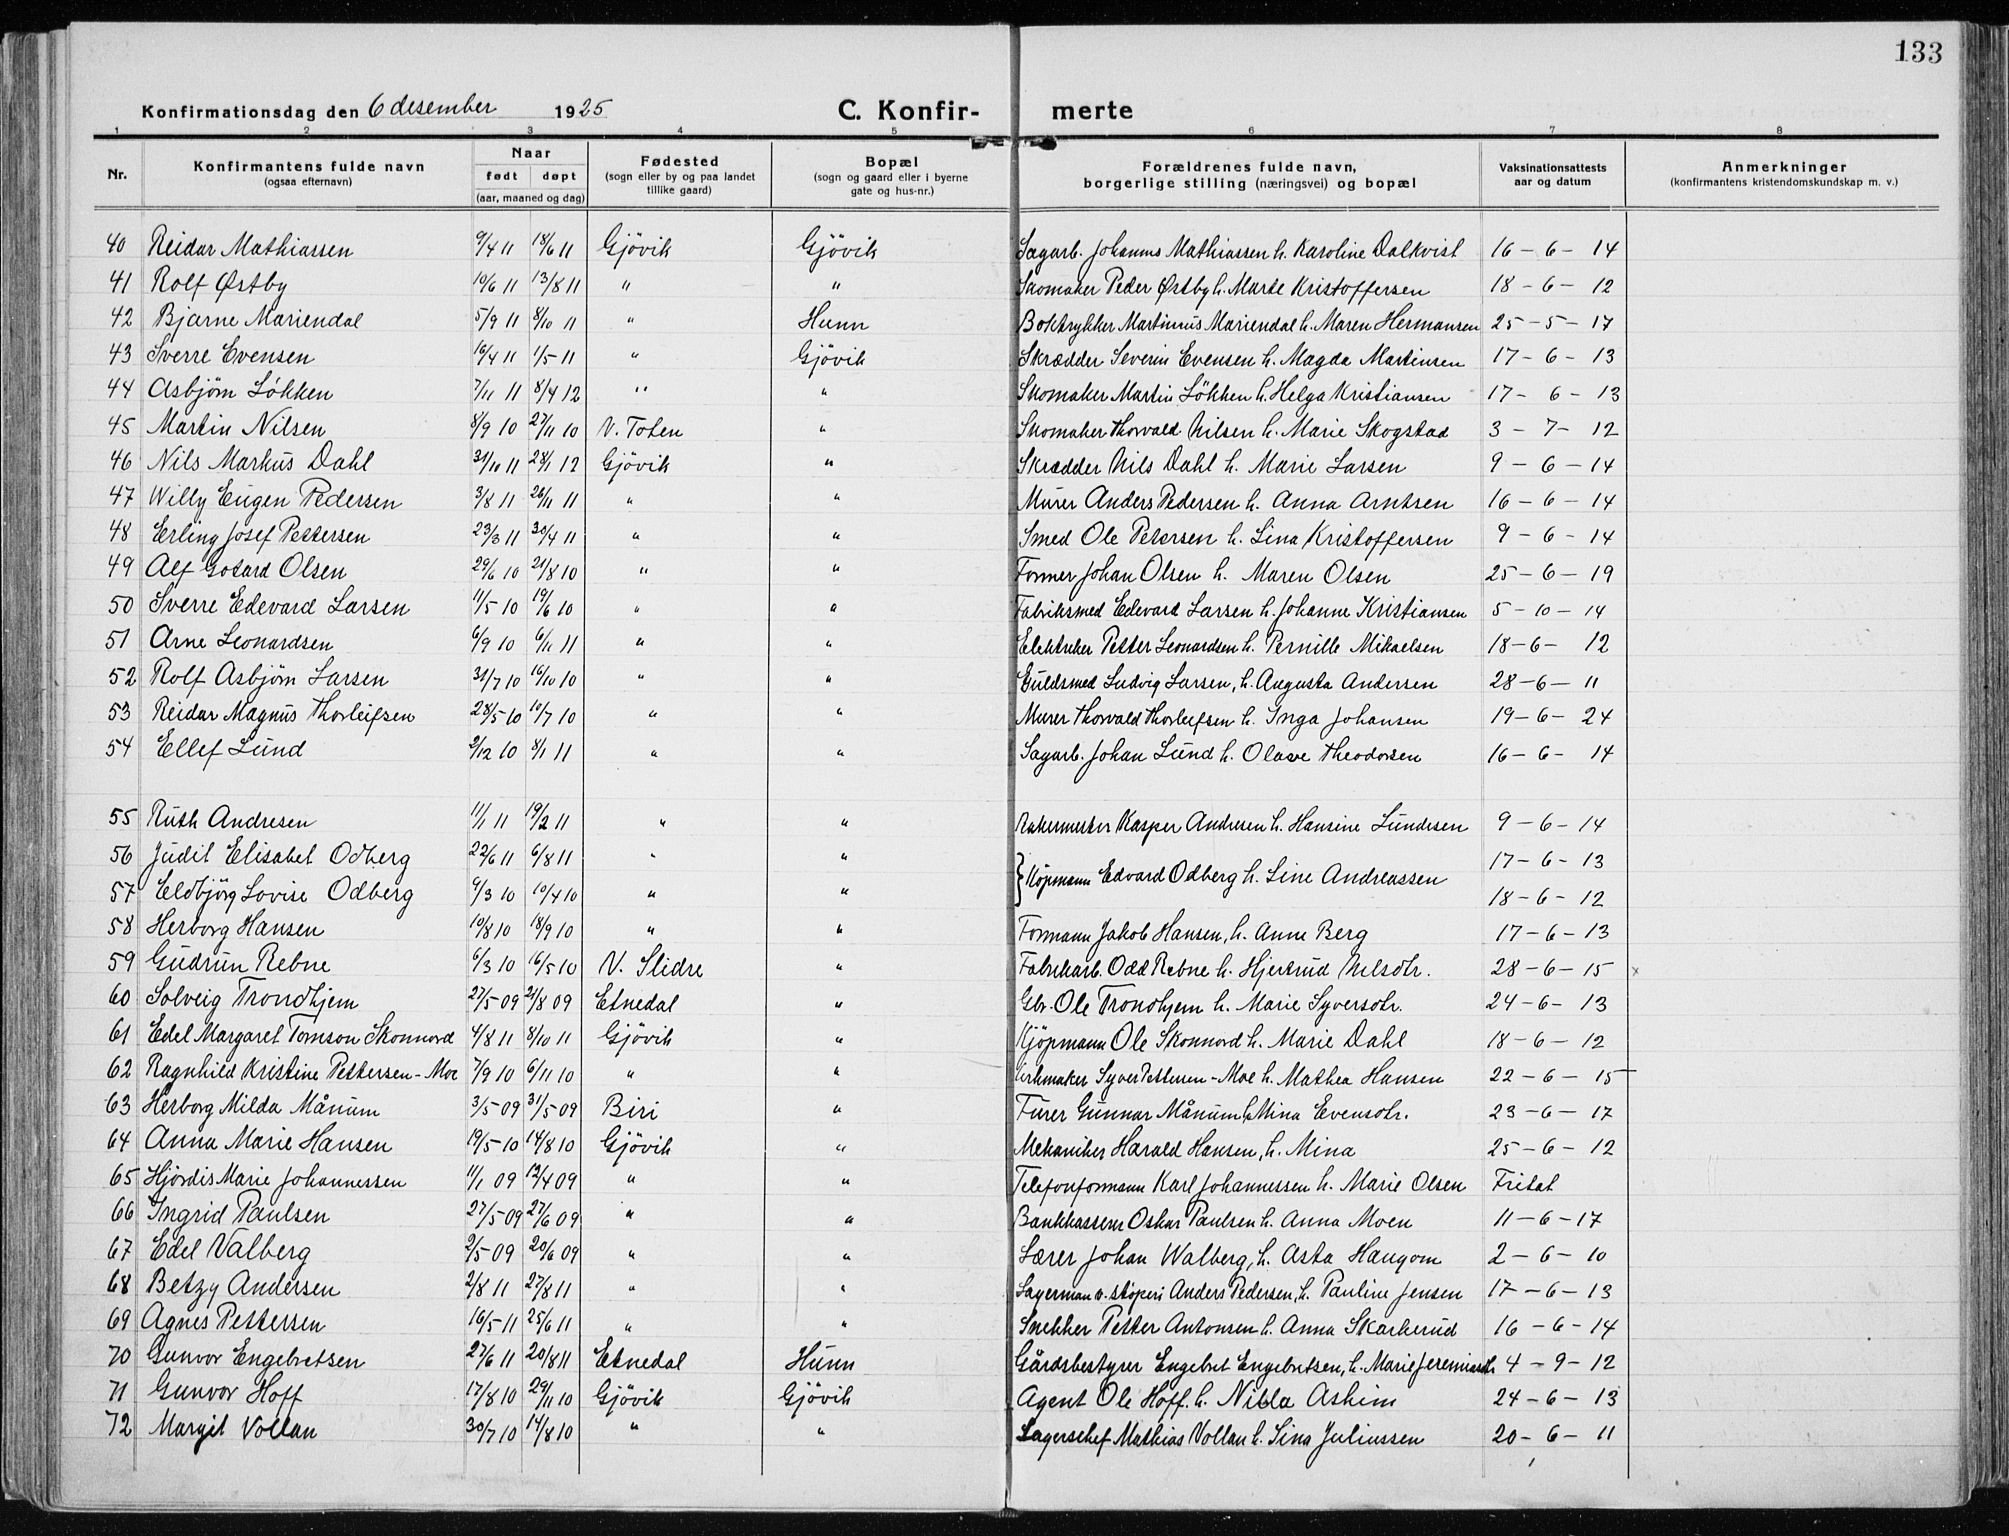 133
Konfirmationsdag den 6 desember 1925 C. Konfir- merte
1 2 3 4 5 6 7 8
Nr. Konfirmantens fulde navn (ogsaa efternavn) Naar født døpt (aar, maaned og dag) Fødested (sogn eller by og paa landet tillike gaard) Bopæl (sogn og gaard eller i byerne gate og hus-nr.) Forældrenes fulde navn, borgerlige stilling (næringsvei) og bopæl Vaksinationsattests aar og datum Anmerkninger (konfirmantens kristendomskundskap m. v.)
40 Reidar Mathiassen 9/4 11 18/6 11 Gjövik Gjövik Sagarb. Johannes Mathiassen h. Karoline Dalkvist 16-6-14
41 Rolf Østby 10/6 11 13/8 11 " " Skomaker Peder Østby h. Marte Kristoffersen 18-6-12
42 Bjarne Mariendal 5/9 11 8/10 11 " Hunn Boktrykker Martinus Mariendal h. Maren Hermansen 25-5-17
43 Sverre Evensen 16/4 11 1/5 11 " Gjövik Skrædder Severin Evensen h. Magda Martinsen 17-6-13
44 Asbjörn Lökken 7/11 11 8/4 12 " " Skomaker Martin Lökken h. Helga Kristiansen 17-6-13
45 Martin Nilsen 8/9 10 27/11 10 V. Toten " Skomaker Thorvald Nilsen h. Marie Skogstad 3-7-12
46 Nils Markus Dahl 31/10 11 28/1 12 Gjövik " Skrædder Nils Dahl h. Marie Larsen 9-6-14
47 Willy Eugen Pedersen 3/8 11 26/11 11 " " Murer Anders Pedersen h. Anna Arntsen 16-6-14
48 Erling Josef Pettersen 23/3 11 30/4 11 " " Smed Ole Petersen h. Lina Kristoffersen 9-6-14
49 Alf Gotard Olsen 29/6 10 21/8 10 " " Former Johan Olsen h. Maren Olsen 25-6-19
50 Sverre Edevard Larsen 11/5 10 19/6 10 " " Fabriksmed Edevard Larsen h. Johanne Kristiansen 5-10-14
51 Arne Leonardsen 6/9 10 6/11 11 " " Elektriker Petter Leonardsen h. Pernille Mikaelsen 18-6-12
52 Rolf Asbjörn Larsen 31/7 10 16/10 10 " " Guldsmed Ludvig Larsen, h. Augusta Andersen 28-6-11
53 Reidar Magnus Thorleifsen 28/5 10 10/7 10 " " Murer Thorvald Thorleifsen h. Inga Johansen 19-6-24
54 Ellef Lund 2/12 10 8/1 11 " " Sagarb. Johan Lund h. Olave Theodorsen 16-6-14
55 Ruth Andresen 11/1 11 19/2 11 " " Bakermester Kasper Andresen h. Hansine Lundesen 9-6-14
56 Judit Elisabet Odberg 22/6 11 6/8 11 " " 17-6-13
} Kjöpmann Edvard Odberg h. Line Andreassen
57 Eldbjörg Lovise Odberg 9/3 10 10/4 10 " " 18-6-12
58 Herborg Hansen 10/8 10 18/9 10 " " Formann Jakob Hansen, h. Anne Berg 17-6-13
59 Gudrun Rebne 6/3 10 16/5 10 V. Slidre " Fabrikarb. Odd Rebne h. Hjertrud Nilsdtr. 28-6-15 x
60 Solveig Trondhjem 27/5 09 21/8 09 Etnedal " Gbr. Ole Trondhjem h. Marie Syversdtr. 24-6-13
61 Edel Margaret Tomson Skonnord 4/8 11 8/10 11 Gjövik " Kjöpmann Ole Skonnord h. Marie Dahl 18-6-12
62 Ragnhild Kristine Pettersen-Moe 7/9 10 6/11 10 " " Urmaker Syver Pettersen-Moe h. Mathea Hansen 22-6-15
63 Herborg Milda Månum 3/5 09 31/5 09 Biri " Furer Gunnar Månum h. Mina Evensdtr. 23-6-17
64 Anna Marie Hansen 19/5 10 14/8 10 Gjövik " Mekaniker Harald Hansen, h. Mina 25-6-12
65 Hjördis Marie Johannessen 11/1 09 12/4 09 " " Telefonformann Karl Johannessen h. Marie Olsen Fritat
66 Ingrid Paulsen 27/5 09 27/6 09 " " Bankkasserer Oskar Paulsen h. Anna Moen 11-6-17
67 Edel Valberg 2/5 09 20/6 09 " " Lærer Johan Walberg, h. Asta Haugom 2-6-10
68 Betzy Andersen 2/8 11 27/8 11 " " Lagerman v. støperi Anders Pedersen, h. Pauline Jensen 17-6-13
69 Agnes Pettersen 16/5 11 25/6 11 " " Snekker Petter Antonsen h. Anna Skarkerud 16-6-14
70 Gunvor Engebretsen 27/6 11 20/8 11 Etnedal Hunn Gårdsbestyrer Engebret Engebretsen, h. Marie Jeremiasdtr. 4-9-12
71 Gunvor Hoff 17/8 10 29/11 10 Gjövik Gjövik Agent Ole Hoff. h. Nilla Askim 24-6-13
72 Margit Vollan 30/7 10 14/8 10 " " Lagerschef Mathias Vollan h. Lina Juliussen 20-6-11